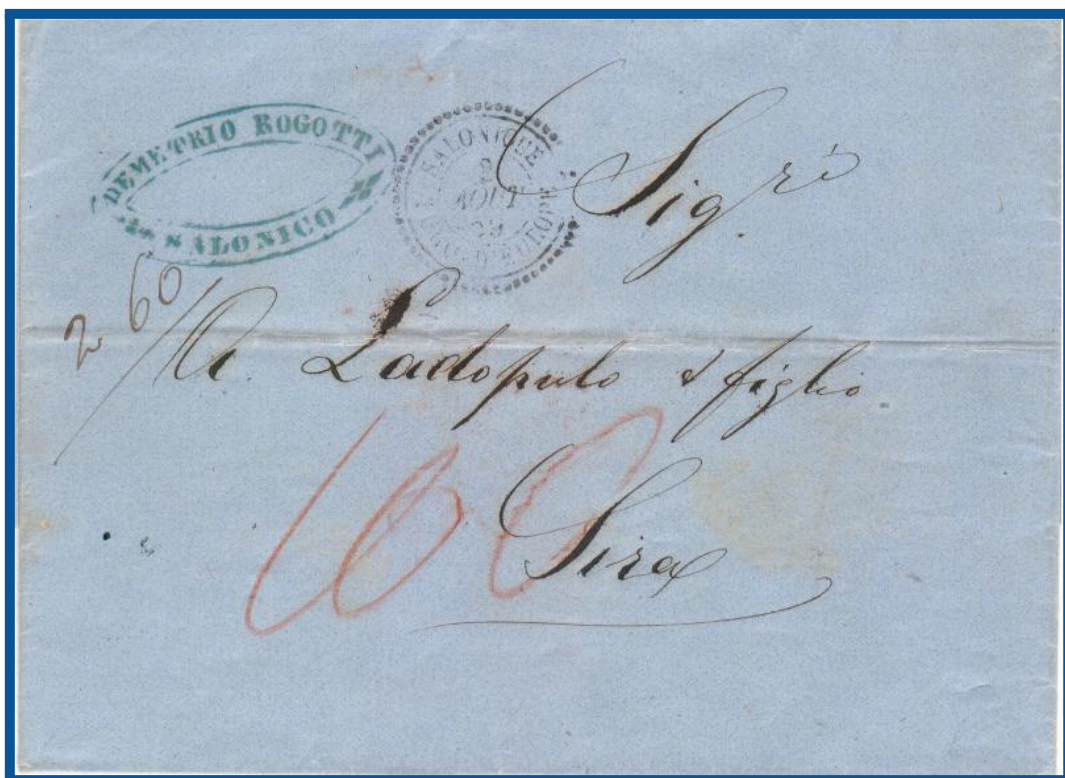 DEMETRIO ROGOTTI
SALONICO
SALONIQUE
2
AOUT
59
Sig.ri
2 60
Ladopulo & figlio
60
Sira